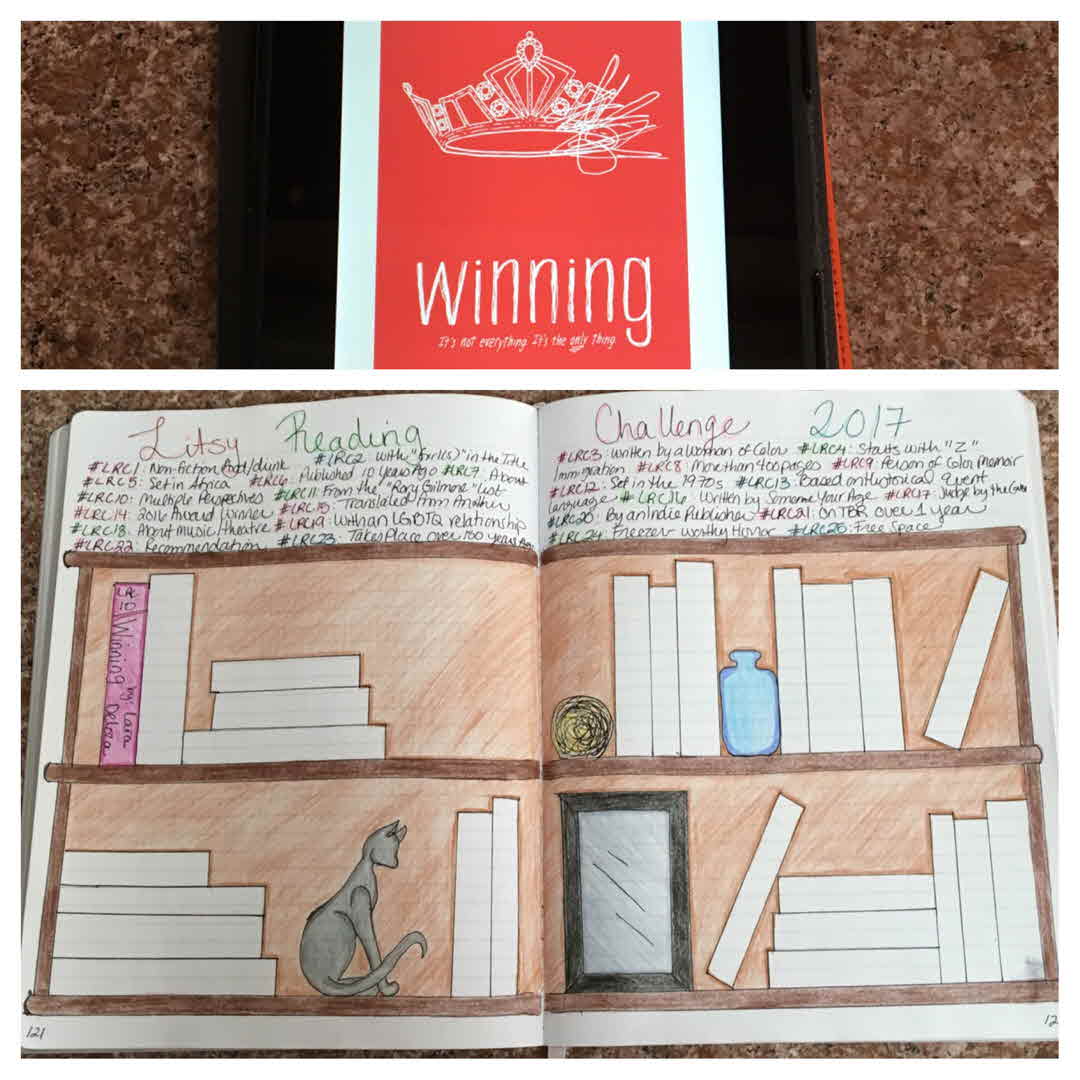 winning
It's not everything. It's the only thing.
Litsy Reading Challenge 2017
#LRC1: Non-fiction food/drink #LRC2 with "Girl(s)" in the Title
#LRC5: Set in Africa #LRC6: Published 10 Years Ago #LRC7: About
#LRC10: Multiple Perspectives #LRC11: From the "Rory Gilmore" List
#LRC14: 2016 Award Winner #LRC15: Translated from Another
#LRC18: About Music/theatre #LRC19: With an LGBTQ relationship
#LRC22: Recommendation #LRC23: Takes Place over 100 years Ago
#LRC3: Written by a Woman of Color #LRC4: Starts with "Z"
Immigration #LRC8: More than 400 pages #LRC9: Person of Color Memoir
#LRC12: Set in the 1970s #LRC13: Based on Historical event
Language #LRC16 Written by Someone Your Age #LRC17: Judge by the Cover
#LRC20: By an Indie Publisher #LRC21: On TBR over 1 year
#LRC24: Freezer worthy Horror #LRC25: Free Space
LR
10
Winning
by: Lara
Deloza
121
12